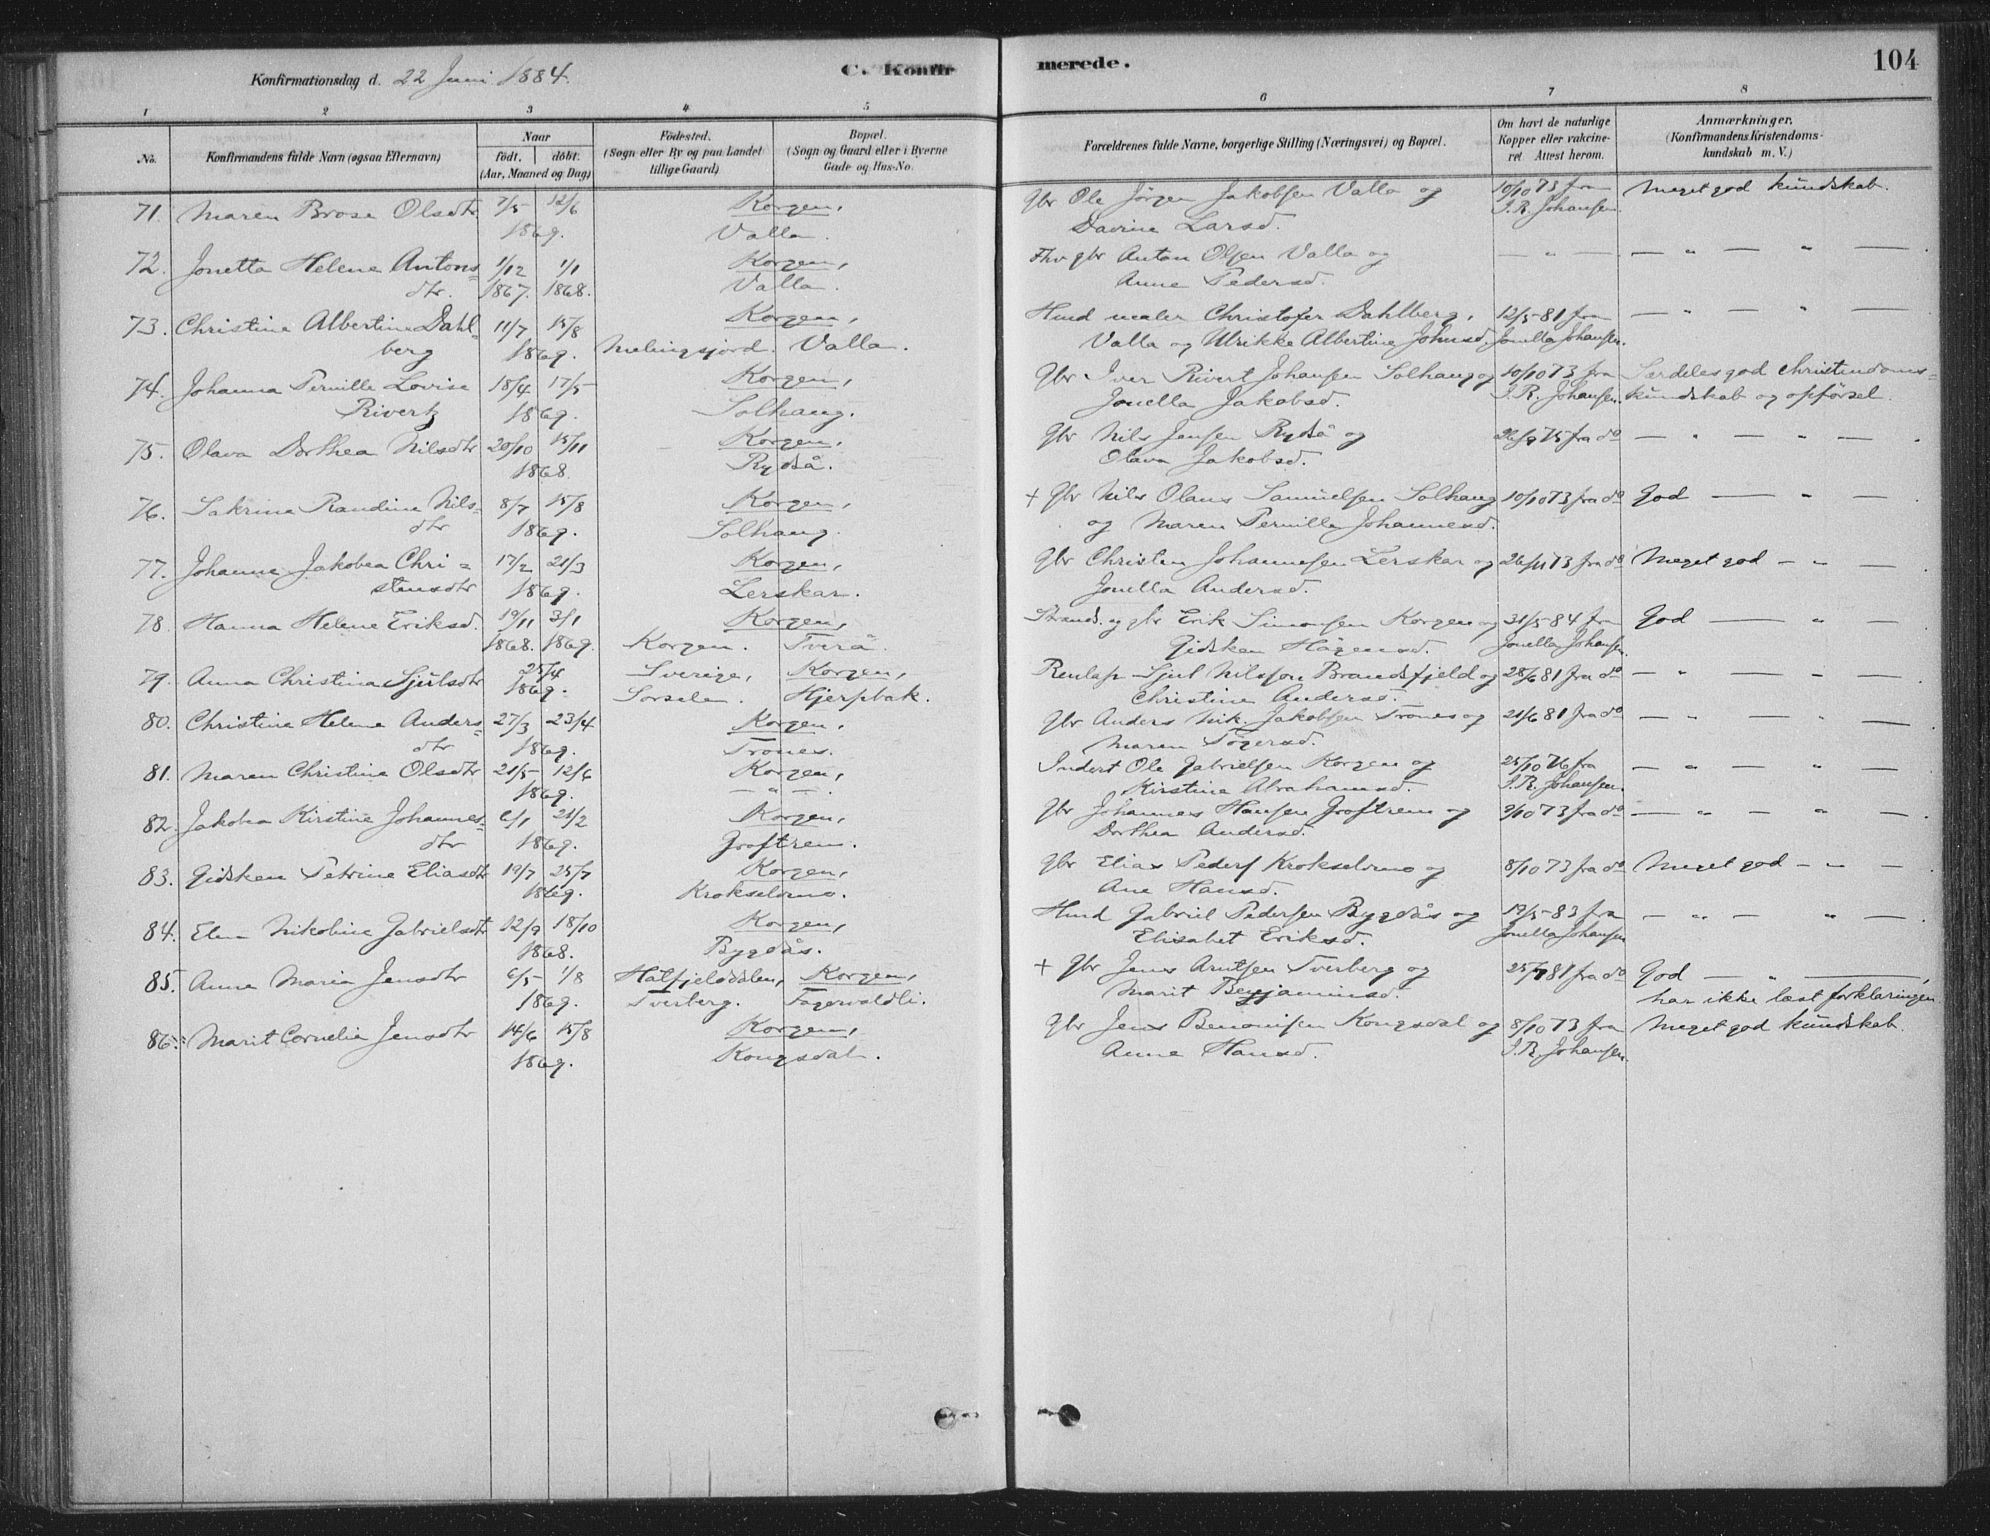 Konfirmationsdag d. 22 Juni 1884.
C. Konfir
merede.
104
1 2 3 4 5 6 7 8
No.
Konfirmandens fulde Navn (ogsaa Efternavn)
Naar
født. døbt.
(Aar, Maaned og Dag)
Födested.
(Sogn eller By og paa Landet
tillige Gaard)
Bopæl.
(Sogn og Gaard eller i Byerne
Gade og Hus-No.
Forældrenes fulde Navne, borgerlige Stilling (Næringsvei) og Bopæl.
Om havt de naturlige
Kopper eller vakcine-
ret. Attest herom.
Anmærkninger.
(Konfirmandens Kristendoms-
kundskab m. V.)
71. Maren Brose Olsdtr 7/5 12/6 Korgen, Gbr Ole Jörgen Jakobsen Valla og 10/10 73 fra Meget god kundskab.
1869. Valla. Davine Larsd. I.R. Johansen.
72. Jonetta Helene Antons- 1/12 1/1 Korgen, Fhv gbr Anton Olsen Valla og — " — — " — " —
dtr. 1867. 1868. Valla. Anne Pedersd.
73. Christine Albertine Dahl- 11/7 15/8 Korgen, Husd maler Christofer Dahlberg, 12/5-81 fra — " — " —
berg 1869. Valla. Valla og Ulrikke Albertine Johnsd. Jonella Johansen.
74. Johanna Pernille Lovise 18/4 17/5 Korgen, Gbr Iver Rivert Johansen Solhaug og 10/10 73 fra Særdeles god christendoms-
Rivertz 1869. Solhaug. Jonella Jakobsd. I.R. Johansen. kundskab og opförsel.
75. Olava Dorthea Nilsdtr 20/10 15/11 Korgen, Gbr Nils Jensen Rydså og 75 fra do — " — " —
1868. Rydså. Olava Jakobsd.
76. Sakrine Randine Nils- 8/7 15/8 Korgen, + Gbr Nils Olaus Samuelsen Solhaug 10/10 73 fra do God — " —
dtr 1869. Solhaug. og Maren Pernille Johannesd.
77. Johanne Jakobea Chri- 17/2 21/3 Korgen, Gbr Christen Johannesen Lerskar og 26/11 73 fra do Meget god — " —
stensdtr 1869. Lerskar. Jonella Andersd.
78. Hanna Helene Eriksd. 19/11 3/1 Korgen, Strands. og gbr Erik Simonsen Korgen og 31/5-84 fra God — " —
1868. 1869. Korgen. Tverå. Gidsken Hågensd. Jonella Johansen.
79. Anna Christina Sjulsdtr 25/4 Sverige, Korgen, Renlap Sjul Nilsson Brandsfjeld og 28/6 81 fra do — " — " —
1869. Sorsele. Hjerpbak. Christine Andersd.
80. Christine Helene Anders- 27/3 23/4 Korgen, Gbr Anders Nik. Jakobsen Trones og 21/6 81 fra do — " — " —
dtr 1869. Trones. Maren Tögersd.
81. Maren Christine Olsdtr 21/5 12/6 Korgen, Inderst Ole Gabrielsen Korgen og 25/10 76 fra — " — " —
1869. — " — . Kirstine Abrahamsd. I.R. Johansen.
82. Jakobea Kirstine Johannes- 6/1 21/2 Korgen, Gbr Johannes Hansen Groftrem og 9/10 73 fra do — " — " —
dtr 1869. Groftrem. Dorthea Andersd.
83. Gidsken Petrine Eliasdtr 19/7 25/7 Korgen, Gbr Elias Peders Krokselvmo og 8/10 73 fra do Meget god — " —
1869. Krokselvmo. Ane Hansd.
84. Elen Nikoline Gabrielsdtr 12/9 18/10 Korgen, Husd Gabriel Pedersen Bygdås og 19/5-83 fra — " — " —
1868. Bygdås. Elisabet Eriksd. Jonella Johansen
85. Anne Maria Jensdtr 6/5 1/8 Hatfjeldsdalen, Korgen, + Gbr Jens Arntsen Tverberg og 25/7 81 fra do God — " —,
1869. Tverberg. Fagervoldli. Marit Benjaminsd. har ikke læst forklaringen
86. Marit Cornelia Jensdtr 14/6 15/8 Korgen, Gbr Jens Benonisen Kongsdal og 8/10 73 fra Meget god kundskab.
1869. Kongsdal. Anne Hansd. I.R. Johansen.